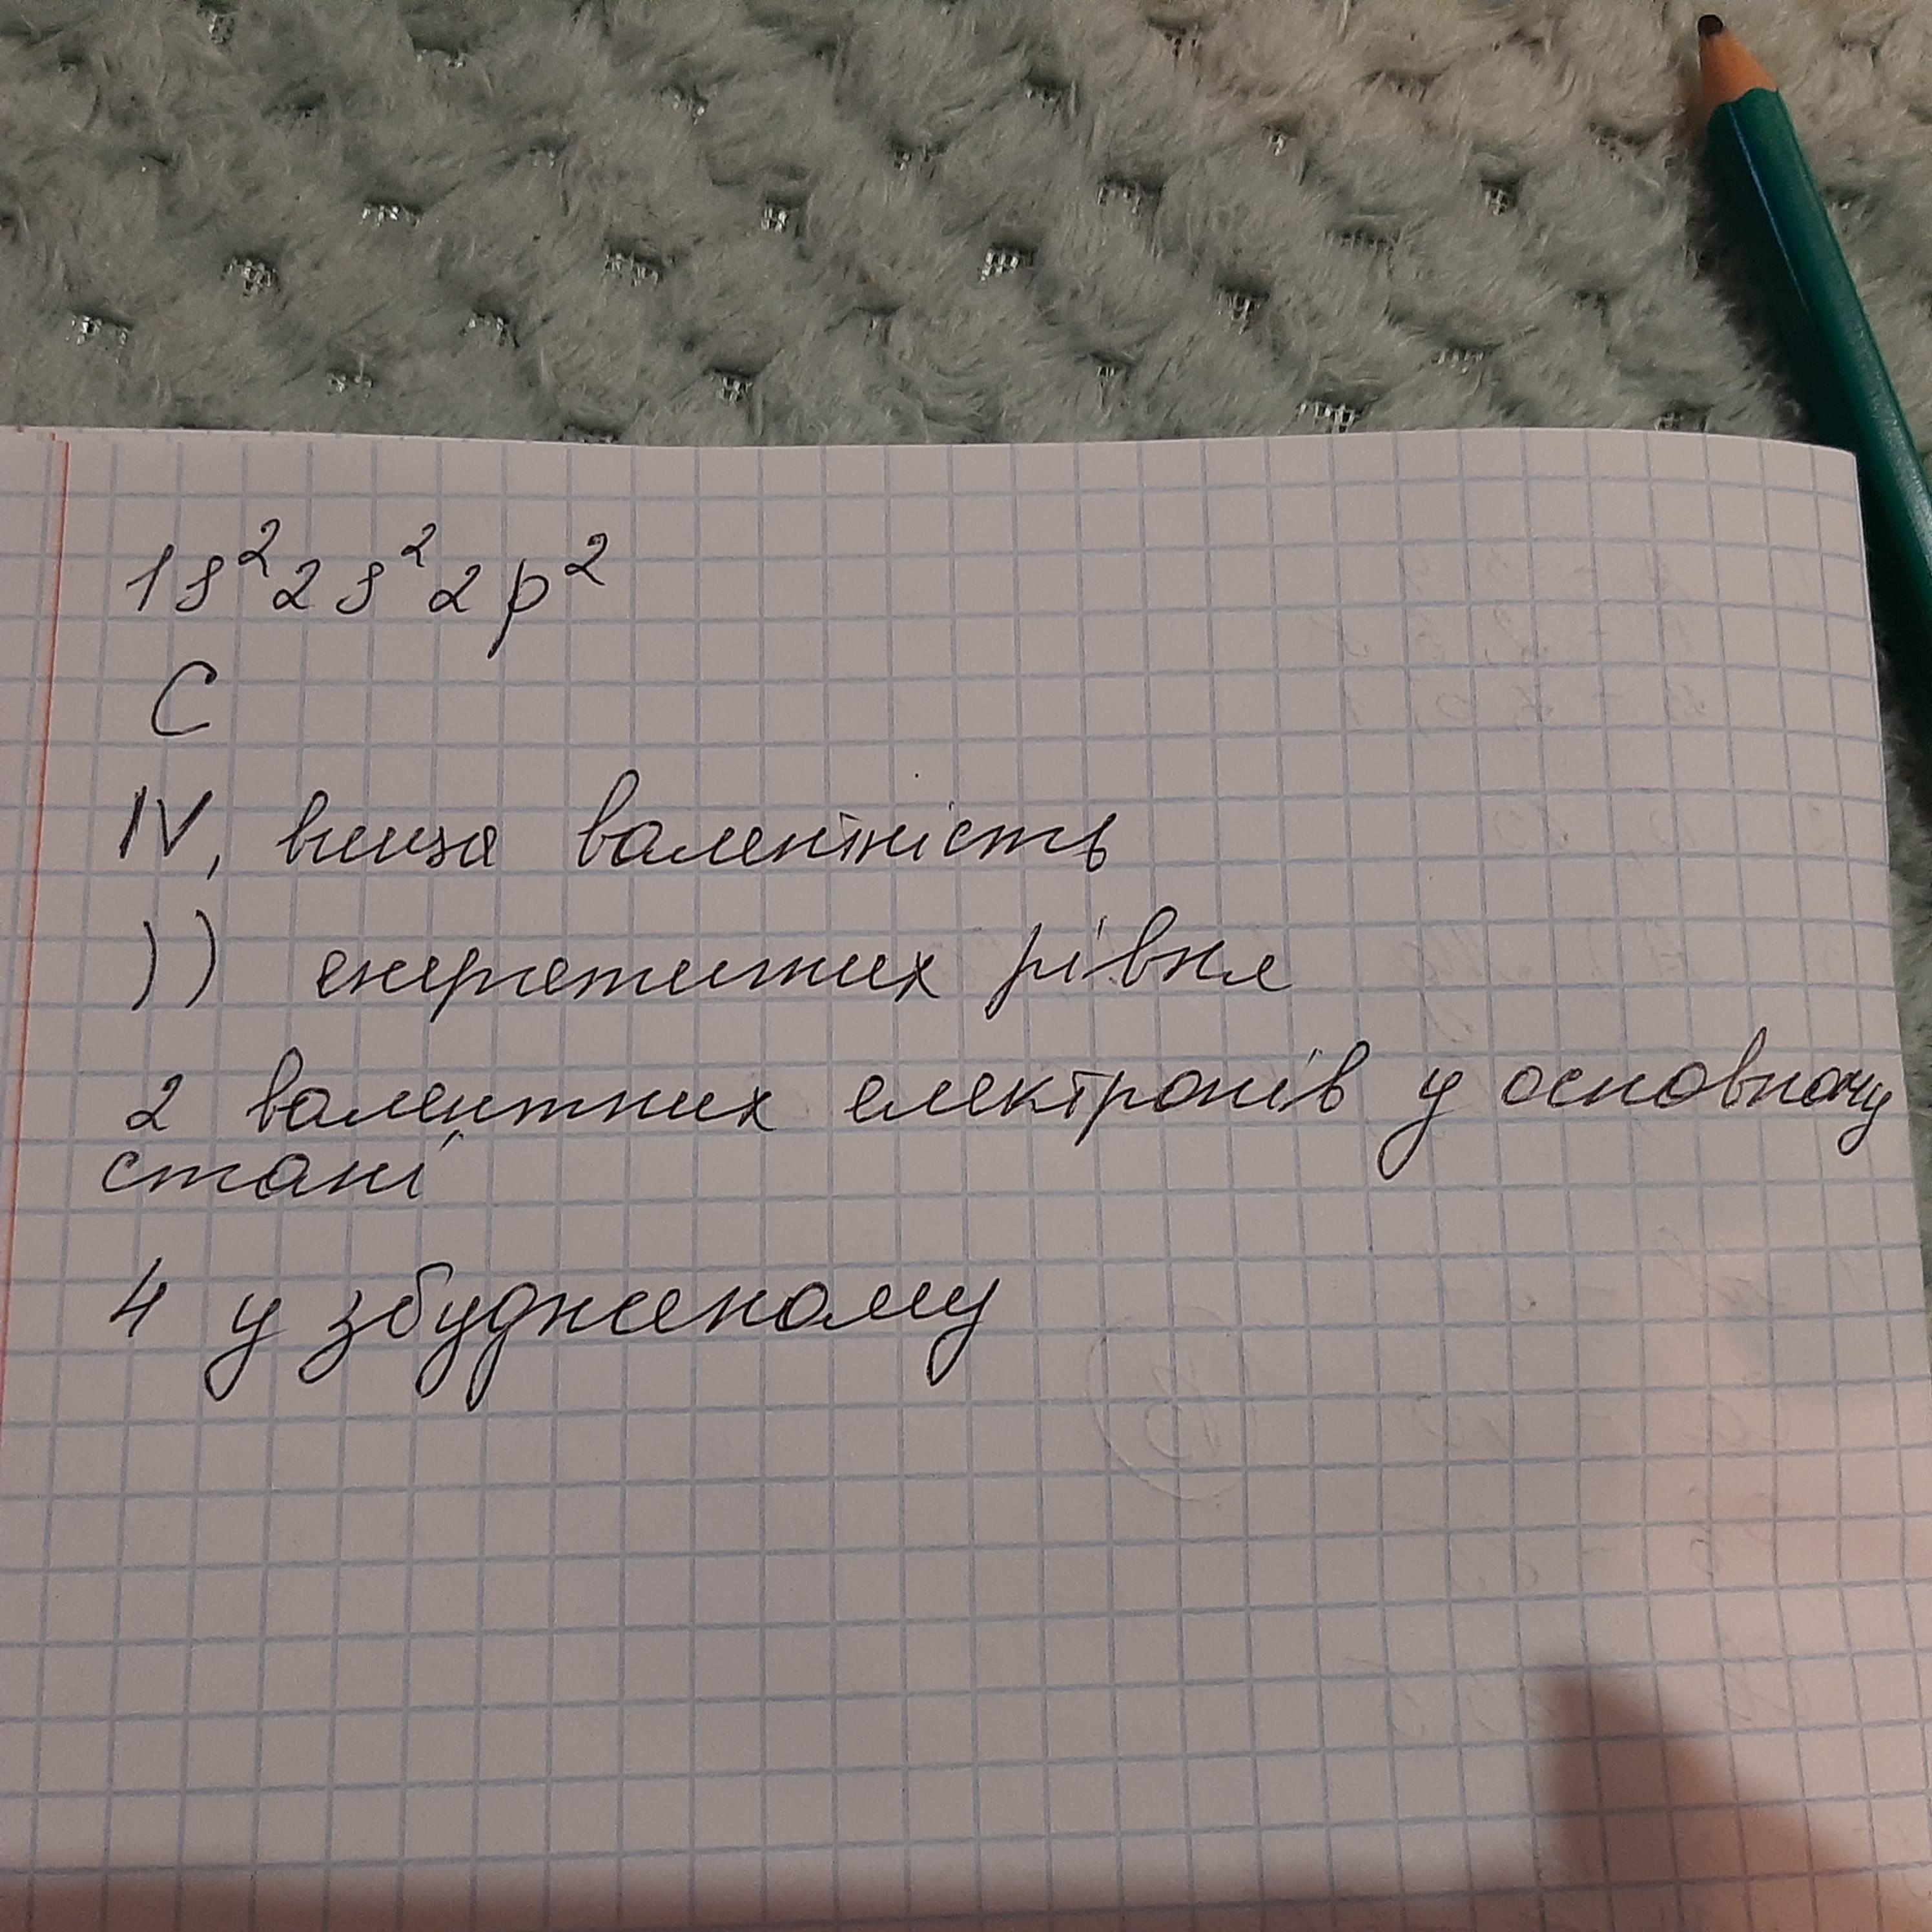 1s²2s²2p²
C
IV, вища валентність
)) енергетичних рівня
2 валентних електронів у основному
стані
4 у збудженому